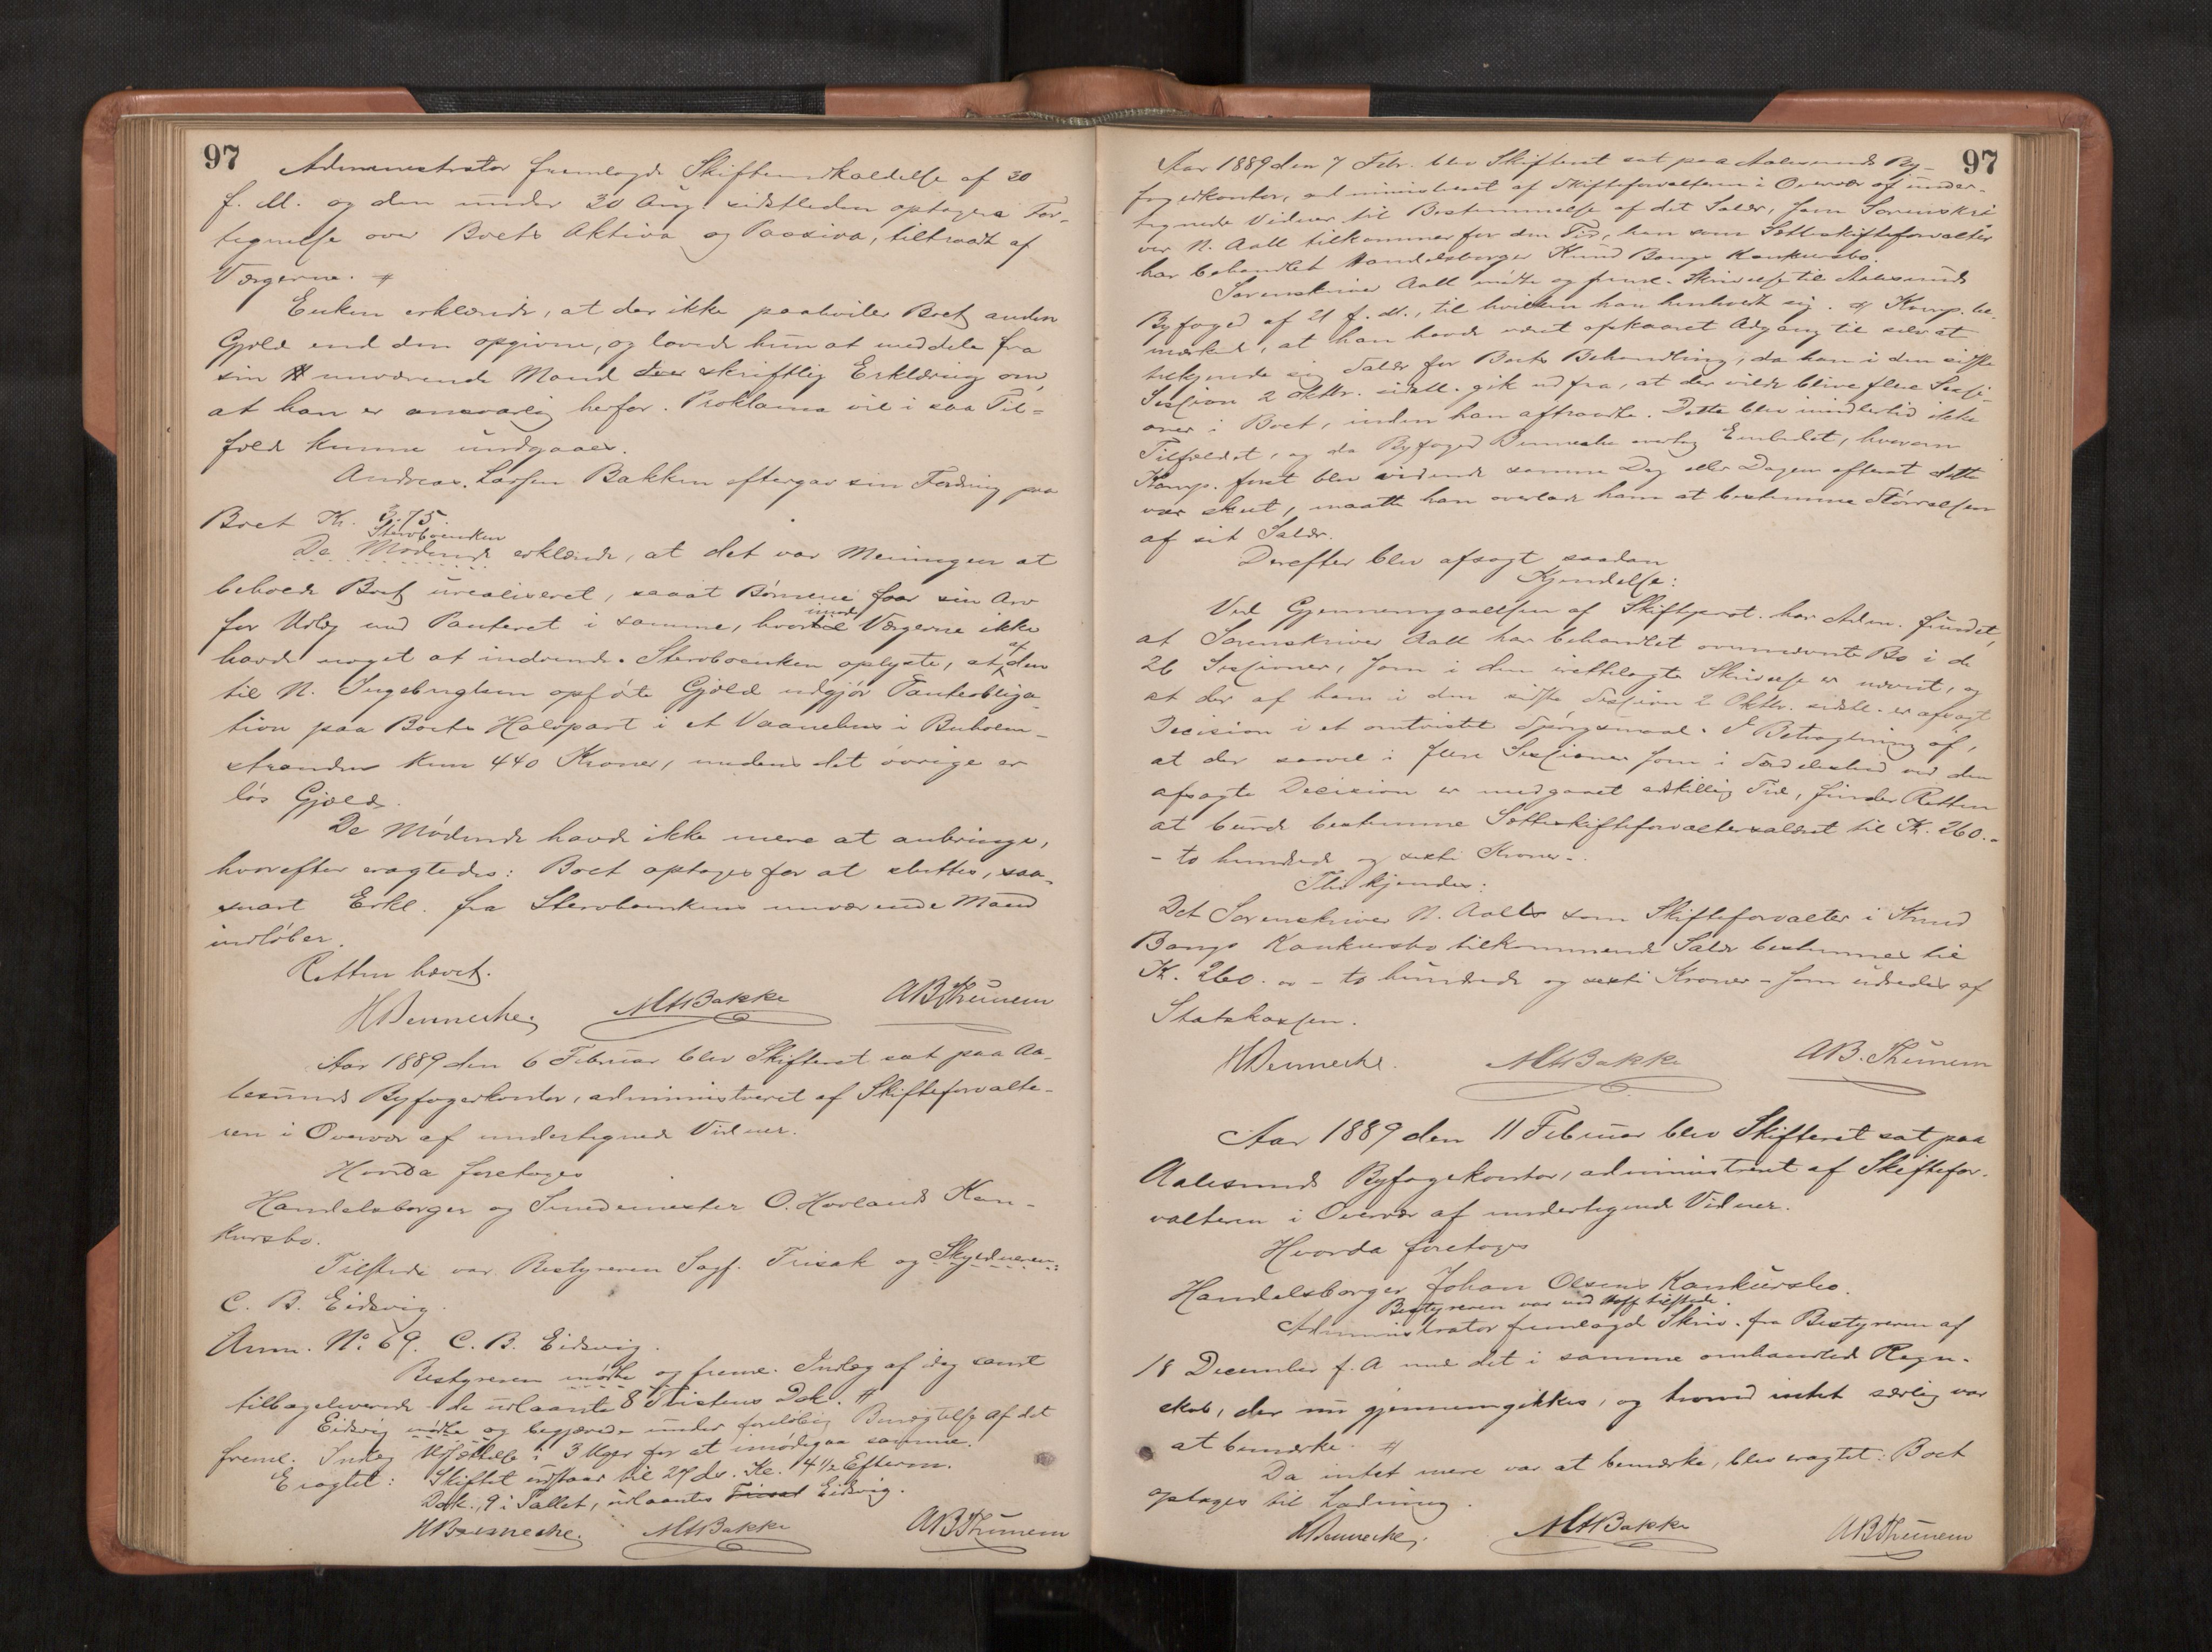 97
Administrator fremlagde Skifteindkaldelse af 30
f. M. og den under 30 Aug. sidstleden optagne For-
tegnelse over Boets Aktiva og Passiva, tiltraadt af
Værgerne. #
Enken erklærede, at der ikke paahviler Boet anden
Gjæld end den opgivne, og lovede hun at meddele fra
sin nuværende Mand skriftlig Erklæring om,
at han er ansvarlig herfor. Proklama vil i saa Til-
fælde kunne undgaaes.
Andreas Larsen Bakken eftergav sin Fordring paa
Boet Kr. 3.75
Stervboenken
De Mødende erklærede, at det var Meningen at
beholde Boet urealiseret, saaat Børnene faar sin Arv
for Udlæg med Panteret i samme, hvortil Værgerne ikke
imod
havde noget at indvende. Stervboenken oplyste, at af den
til N. Ingebrigtsen opførte Gjæld udgjør Panteobliga-
tion paa Boets Halvpart i et Vaanehus i Buholm-
stranden kun 440 Kroner, medens det øvrige er
løs Gjæld.
De Mødende havde ikke mere at anbringe,
hvorefter eragtedes: Boet optages for at sluttes, saa-
snart Erkl. fra Stervboenkens nuværende Mand
indløber.
Retten hævet.
HBennecke. MHBakke ABThunem
Aar 1889 den 6 Februar blev Skifteret sat paa Aa-
lesunds Byfogedkontor, administreret af Skifteforvalte-
ren i Overvær af undertegnede Vidner.
Hvorda foretoges
Handelsborger og Smedemester O. Hovlands Kon-
kursbo.
Tilstede var Bestyreren Sagf. Frisak og Skyldneren
C. B. Eidsvig.
Anm. No 69. C. B. Eidsvig.
Bestyreren mødte og freml. Indlæg af idag samt
tilbageleverede de udlaante 8 Dok. #
Eidsvig mødte og begjærede under foreløbig Benægtelse af det
freml. Indlæg Udsættelse i 3 Uger for at imødegaa samme.
Eragtet: Skiftet udstaar til 27 ds. Kl. 4 1/2 Efterm.
Dok., 9 i Tallet, udlaantes Frisak Eidsvig.
HBennecke. MHBakke ABThunem
97
Aar 1889 den 7 Febr. blev Skifteret sat paa Aalesunds By-
fogedkontor, administreret af Skifteforvalteren i Overvær af under-
tegnede Vidner til Bestemmelse af det Salær, som Sorenskri-
ver N. Aall tilkommer for den Tid, han som Sætteskifteforvalter
har behandlet Handelsborger Knud Bangs Konkursbo.
Sorenskriver Aall mødte og freml. Skrivelse til Aalesunds
Byfoged af 21 f. M., til hvilken han henholdt sig. # Komp. be-
mærkede, at han havde været opskaaret Adgang til selv at
tilkjende sig Salær for Boets Behandling, da han i den sidste
Session 2 Oktbr. sidstl. gik ud fra, at der vilde blive flere Sessi-
oner i Boet, inden han aftraadte. Dette blev imidlertid ikke
Tilfældet, og da Byfoged Bennecke overtog Embedet, hvorom
Komp. først blev vidende samme Dag eller Dagen efterat dette
var skeet, maatte han overlade ham at bestemme Størrelsen
af sit Salær.
Derefter blev afsagt saadan
Kjendelse:
Ved Gjennemgaaelsen af Skifteprot. har Adm. fundet,
at Sorenskriver Aall har behandlet ovennævnte Bo i de
26 Sessioner, som i den irettelagte Skrivelse er nævnt, og
at der af ham i den sidste Session 2 Oktbr. sidstl. er afsagt
Decision i et omtvistet Spørgsmaal. I Betragtning af,
at der saavel i flere Sessioner som i Særdeleshed ved den
afsagte Decision er medgaaet adskillig Tid, finder Retten
at burde bestemme Sætteskifteforvaltersalæret til Kr. 260.-
- to hundrede og sexti Kroner -.
Thi kjendes:
Det Sorenskriver N. Aall som Skifteforvalter i Knud
Bangs Konkursbo tilkommende Salær bestemmes til
Kr. 260.00 - to hundrede og sexti Kroner - som udredes af
Statskassen.
HBennecke. MHBakke AB. Thunem
Aar 1889 den 11 Februar blev Skifteret sat paa
Aalesunds Byfogekontor, administreret af Skiftefor-
valteren i Overvær af undertegnede Vidner.
Hvorda foretoges
Handelsborger Johan Olsens Konkursbo.
Bestyreren var ved tilstede.
Administrator fremlagde Skriv. fra Bestyreren af
18 December f. A. med det i samme omhandlede Regn-
skab, der nu gjennemgikkes, og hvorved intet særlig var
at bemærke. #
Da intet mere var at bemærke, blev eragtet: Boet
optages til Ladning.
HBennecke. MHBakke ABThunem